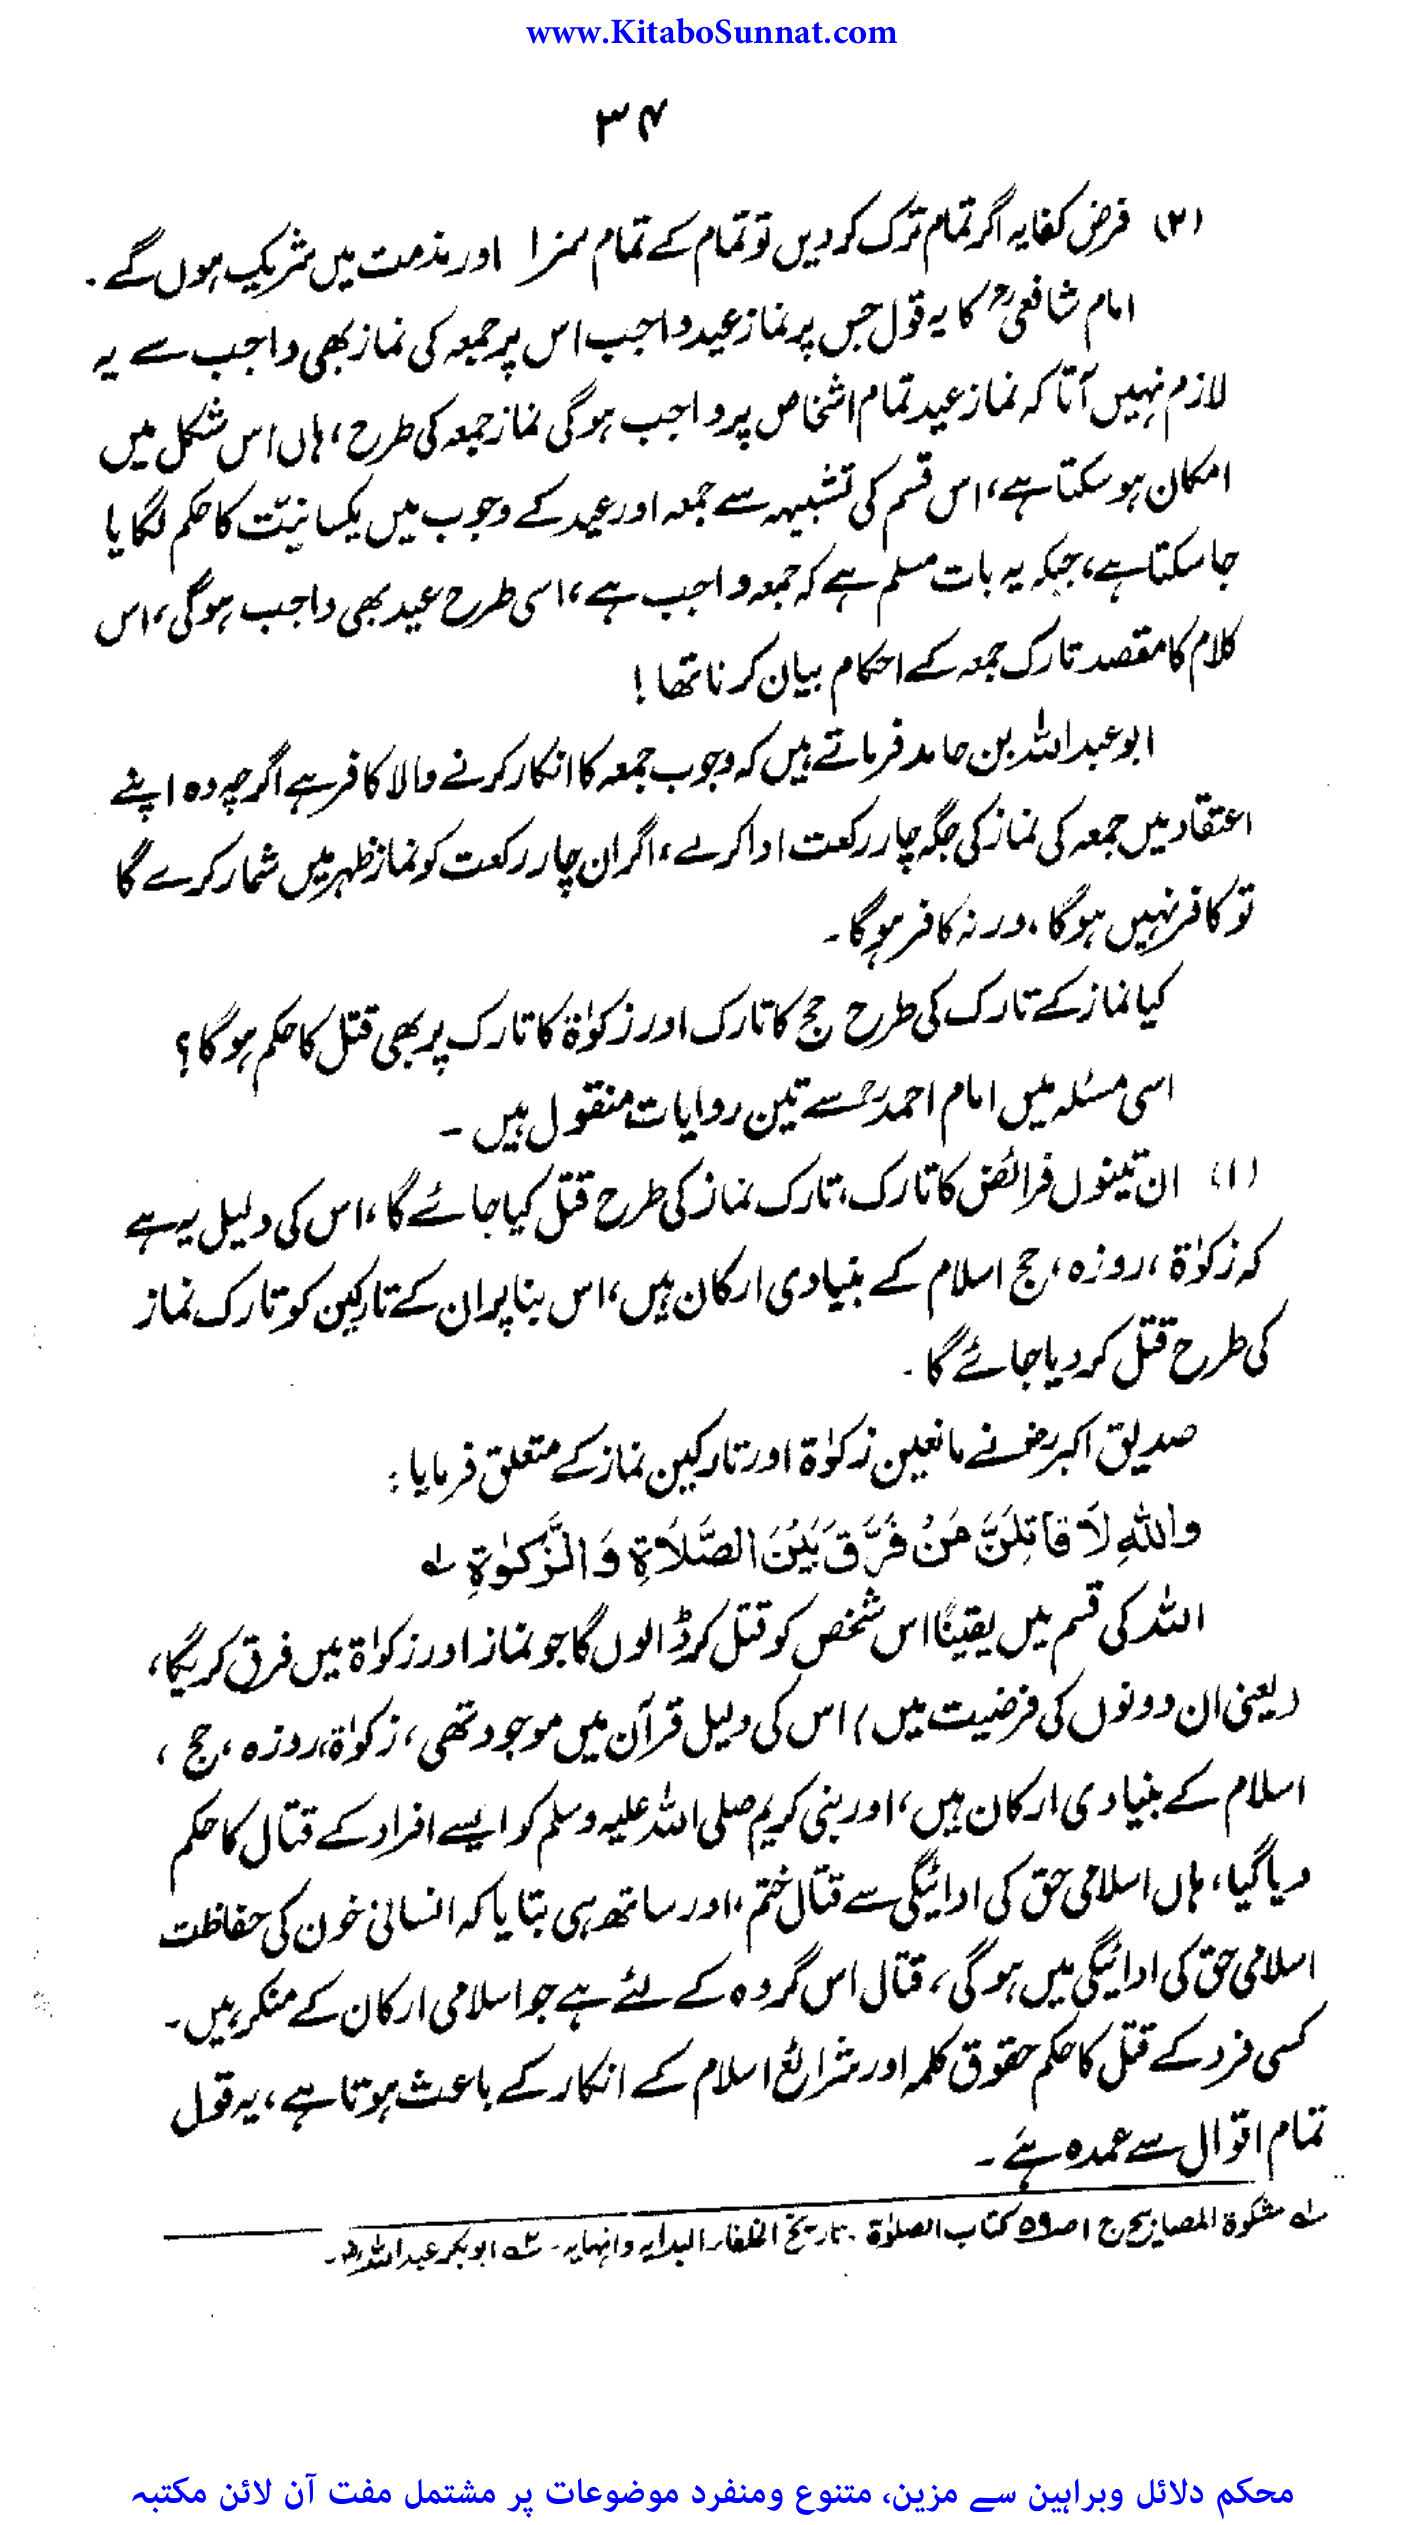 www.KitaboSunnat.com
۳۴
(۲) فرض کفایہ اگر تمام ترک کر دیں تو تمام کے تمام سزا اور مذمت میں شریک ہوں گے۔
امام شافعیؒ کا یہ قول جس پر نماز عید واجب اس پر جمعہ کی نماز بھی واجب سے یہ
لازم نہیں آتا کہ نماز عید تمام اشخاص پر واجب ہوگی نماز جمعہ کی طرح، ہاں اس شکل میں
امکان ہو سکتا ہے، اس قسم کی تشبیہہ سے جمعہ اور عید کے وجوب میں یکسانیت کا حکم لگایا
جا سکتا ہے، جبکہ یہ بات مسلم ہے کہ جمعہ واجب ہے، اسی طرح عید بھی واجب ہوگی، اس
کلام کا مقصد تارک جمعہ کے احکام بیان کرنا تھا !
ابو عبداللہ بن حامد فرماتے ہیں کہ وجوب جمعہ کا انکار کرنے والا کافر ہے اگرچہ وہ اپنے
اعتقاد میں جمعہ کی نماز کی جگہ چار رکعت ادا کرلے، اگر ان چار رکعت کو نماز ظہر میں شمار کرے گا
تو کافر نہیں ہوگا، ورنہ کافر ہوگا۔
کیا نماز کے تارک کی طرح حج کا تارک اور زکوٰۃ کا تارک پر بھی قتل کا حکم ہوگا؟
اسی مسئلہ میں امام احمدؒ سے تین روایات منقول ہیں۔
(۱) ان تینوں فرائض کا تارک، تارک نماز کی طرح قتل کیا جائے گا، اس کی دلیل یہ ہے
کہ زکوٰۃ، روزہ، حج اسلام کے بنیادی ارکان ہیں، اس بنا پر ان کے تارکین کو تارک نماز
کی طرح قتل کر دیا جائے گا۔
صدیق اکبرؓ نے مانعین زکوٰۃ اور تارکین نماز کے متعلق فرمایا:
واللهِ لَاَ قَاتِلَنَّ مَنْ فَرَّقَ بَيْنَ الصَّلَاةِ وَالزَّكٰوةِ ؎۱
اللہ کی قسم میں یقیناً اس شخص کو قتل کر ڈالوں گا جو نماز اور زکوٰۃ میں فرق کریگا،
(یعنی ان دونوں کی فرضیت میں) اس کی دلیل قرآن میں موجود تھی، زکوٰۃ، روزہ، حج،
اسلام کے بنیادی ارکان ہیں، اور نبی کریم صلی اللہ علیہ وسلم کو ایسے افراد کے قتال کا حکم
دیا گیا، ہاں اسلامی حق کی ادائیگی سے قتال ختم، اور ساتھ ہی بتایا کہ انسانی خون کی حفاظت
اسلامی حق کی ادائیگی میں ہوگی، قتال اس گروہ کے لئے ہے جو اسلامی ارکان کے منکر ہیں۔
کسی فرد کے قتل کا حکم حقوق کلمہ اور شرائع اسلام کے انکار کے باعث ہوتا ہے، یہ قول
تمام اقوال سے عمدہ ہے۔
؎۱ مشکوۃ المصابیح ج ۱ ص۵۹ کتاب الصلوٰۃ۔ تاریخ الخلفاء، البدایہ و انہایہ۔ ؎۲ ابوبکر عبداللہؓ۔
محکم دلائل وبراہین سے مزین، متنوع ومنفرد موضوعات پر مشتمل مفت آن لائن مکتبہ